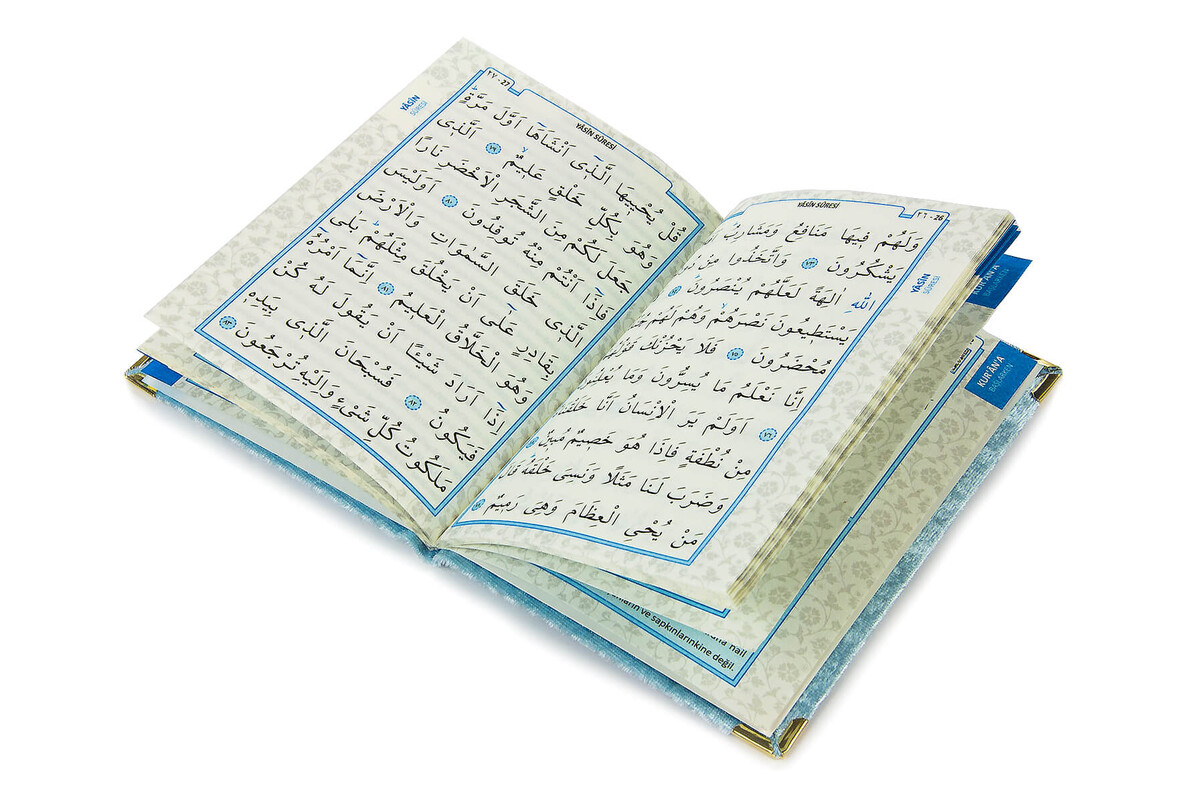 YÂSİN SÛRESİ
٢٦ - 26
YÂSİN
SÛRESİ
وَلَهُمْ فِيهَا مَنَافِعُ وَمَشَارِبُ
يَشْكُرُونَ ﴿٧٣﴾ وَاتَّخَذُوا مِنْ
اللّٰهِ اٰلِهَةً لَعَلَّهُمْ يُنْصَرُونَ ﴿٧٤﴾
يَسْتَطِيعُونَ نَصْرَهُمْ وَهُمْ لَهُمْ
مُحْضَرُونَ ﴿٧٥﴾ فَلَا يَحْزُنْكَ
اِنَّا نَعْلَمُ مَا يُسِرُّونَ وَمَا
﴿٧٦﴾ اَوَلَمْ يَرَ الْاِنْسَانُ اَنَّا
مِنْ نُطْفَةٍ فَاِذَا هُوَ خَصِيمٌ مُبِينٌ ﴿٧٧﴾
وَضَرَبَ لَنَا مَثَلًا وَنَسِىَ خَلْقَهُ
مَنْ يُحْيِ الْعِظَامَ وَهِىَ رَمِيمٌ ﴿٧٨﴾
٢٧ - 27
YÂSİN SÛRESİ
YÂSİN
SÛRESİ
قُلْ يُحْيِيهَا الَّذِى اَنْشَاَهَا اَوَّلَ مَرَّةٍ
وَهُوَ بِكُلِّ خَلْقٍ عَلِيمٌ ﴿٧٩﴾ الَّذِى
جَعَلَ لَكُمْ مِنَ الشَّجَرِ الْاَخْضَرِ نَارًا
فَاِذَا اَنْتُمْ مِنْهُ تُوقِدُونَ ﴿٨٠﴾ اَوَلَيْسَ
الَّذِى خَلَقَ السَّمٰوَاتِ وَالْاَرْضَ
بِقَادِرٍ عَلٰى اَنْ يَخْلُقَ مِثْلَهُمْ بَلٰى
وَهُوَ الْخَلَّاقُ الْعَلِيمُ ﴿٨١﴾ اِنَّمَا اَمْرُهُ
اِذَا اَرَادَ شَيْئًا اَنْ يَقُولَ لَهُ كُنْ
فَيَكُونُ ﴿٨٢﴾ فَسُبْحَانَ الَّذِى بِيَدِهِ
مَلَكُوتُ كُلِّ شَىْءٍ وَاِلَيْهِ تُرْجَعُونَ ﴿٨٣﴾
KUR'ÂN'A
BAŞLARKEN
KUR'ÂN'A
BAŞLARKEN
nail
ve sapkınlarınkine değil.